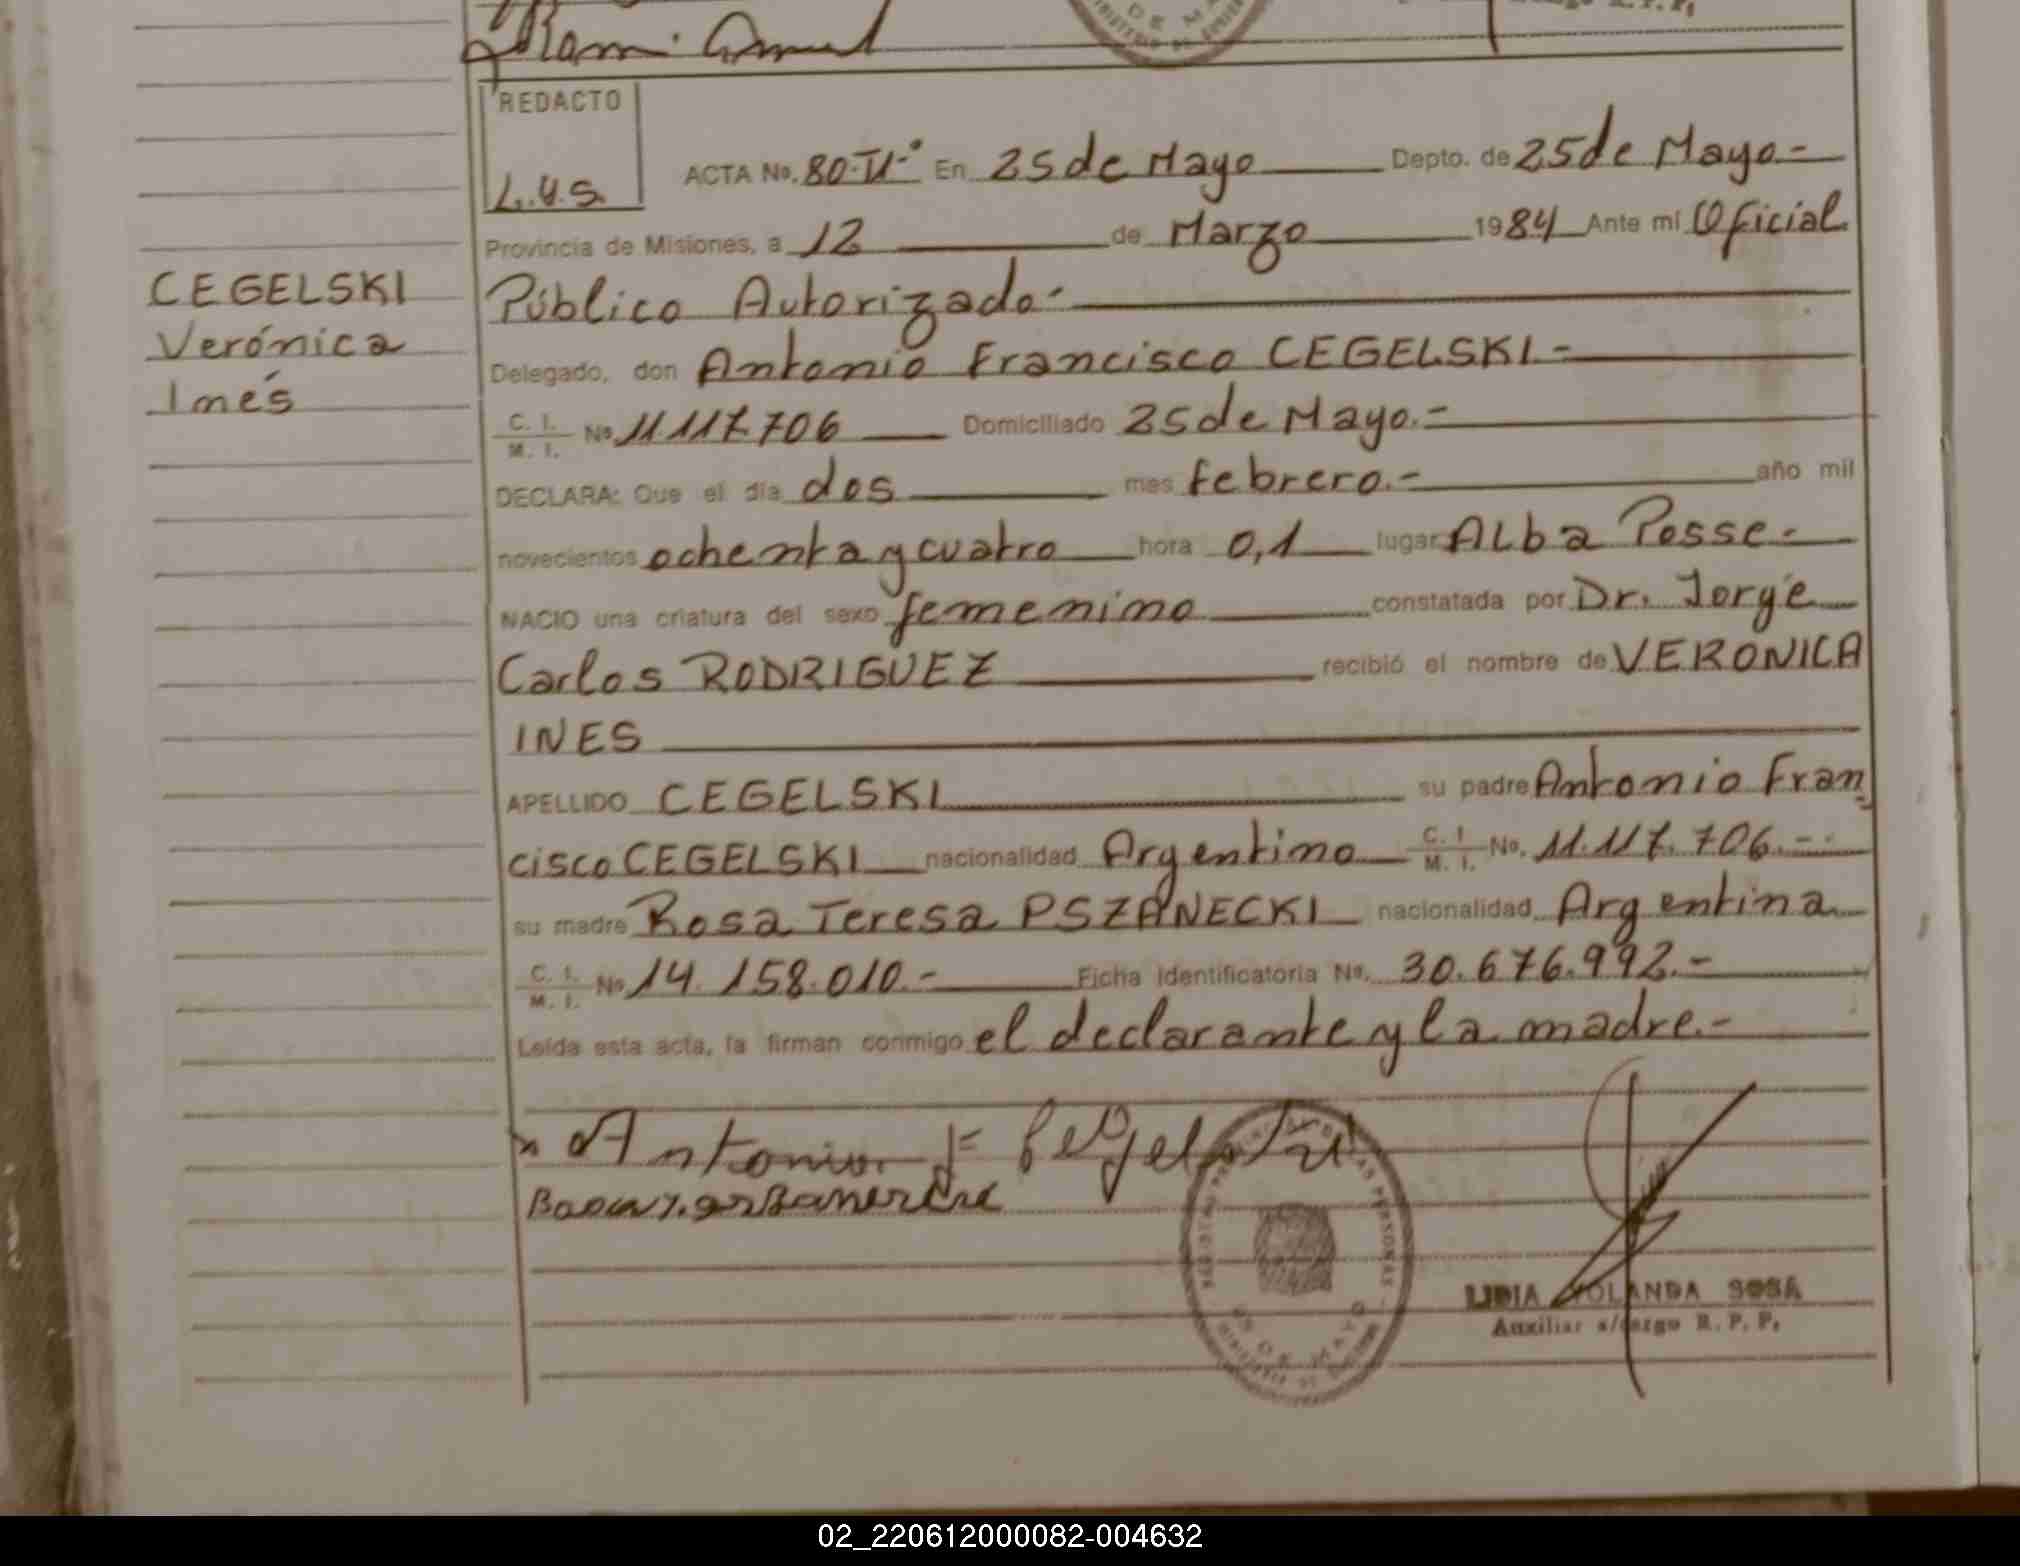 REDACTO
L.Y.S.
ACTA No. 80-TI-° En 25 de Mayo Depto. de 25 de Mayo.-
Provincia de Misiones, a 12 de Marzo 1984 Ante mí Oficial
Público Autorizado.-
Delegado, don Antonio Francisco CEGELSKI.-
C. I. M. I. No 11.117.706 Domiciliado 25 de Mayo.-
DECLARA: Que el día dos mes febrero.- año mil
novecientos ochenta y cuatro hora 0,1 lugar Alba Posse.-
NACIO una criatura del sexo femenino constatada por Dr. Jorge
Carlos RODRIGUEZ recibió el nombre de VERONICA
INES
APELLIDO CEGELSKI su padre Antonio Fran
cisco CEGELSKI nacionalidad Argentino C. I. M. I. No. 11.117.706.-
su madre Rosa Teresa PSZANECKI nacionalidad Argentina
C. I. M. I. No 14.158.010.- Ficha Identificatoria No. 30.676.992.-
Leída esta acta, la firman conmigo el declarante y la madre.-
CEGELSKI
Verónica
Inés
Antonio F Cegelski
LIDIA YOLANDA SOSA
Auxiliar a/cargo R. P. P.
02_220612000082-004632